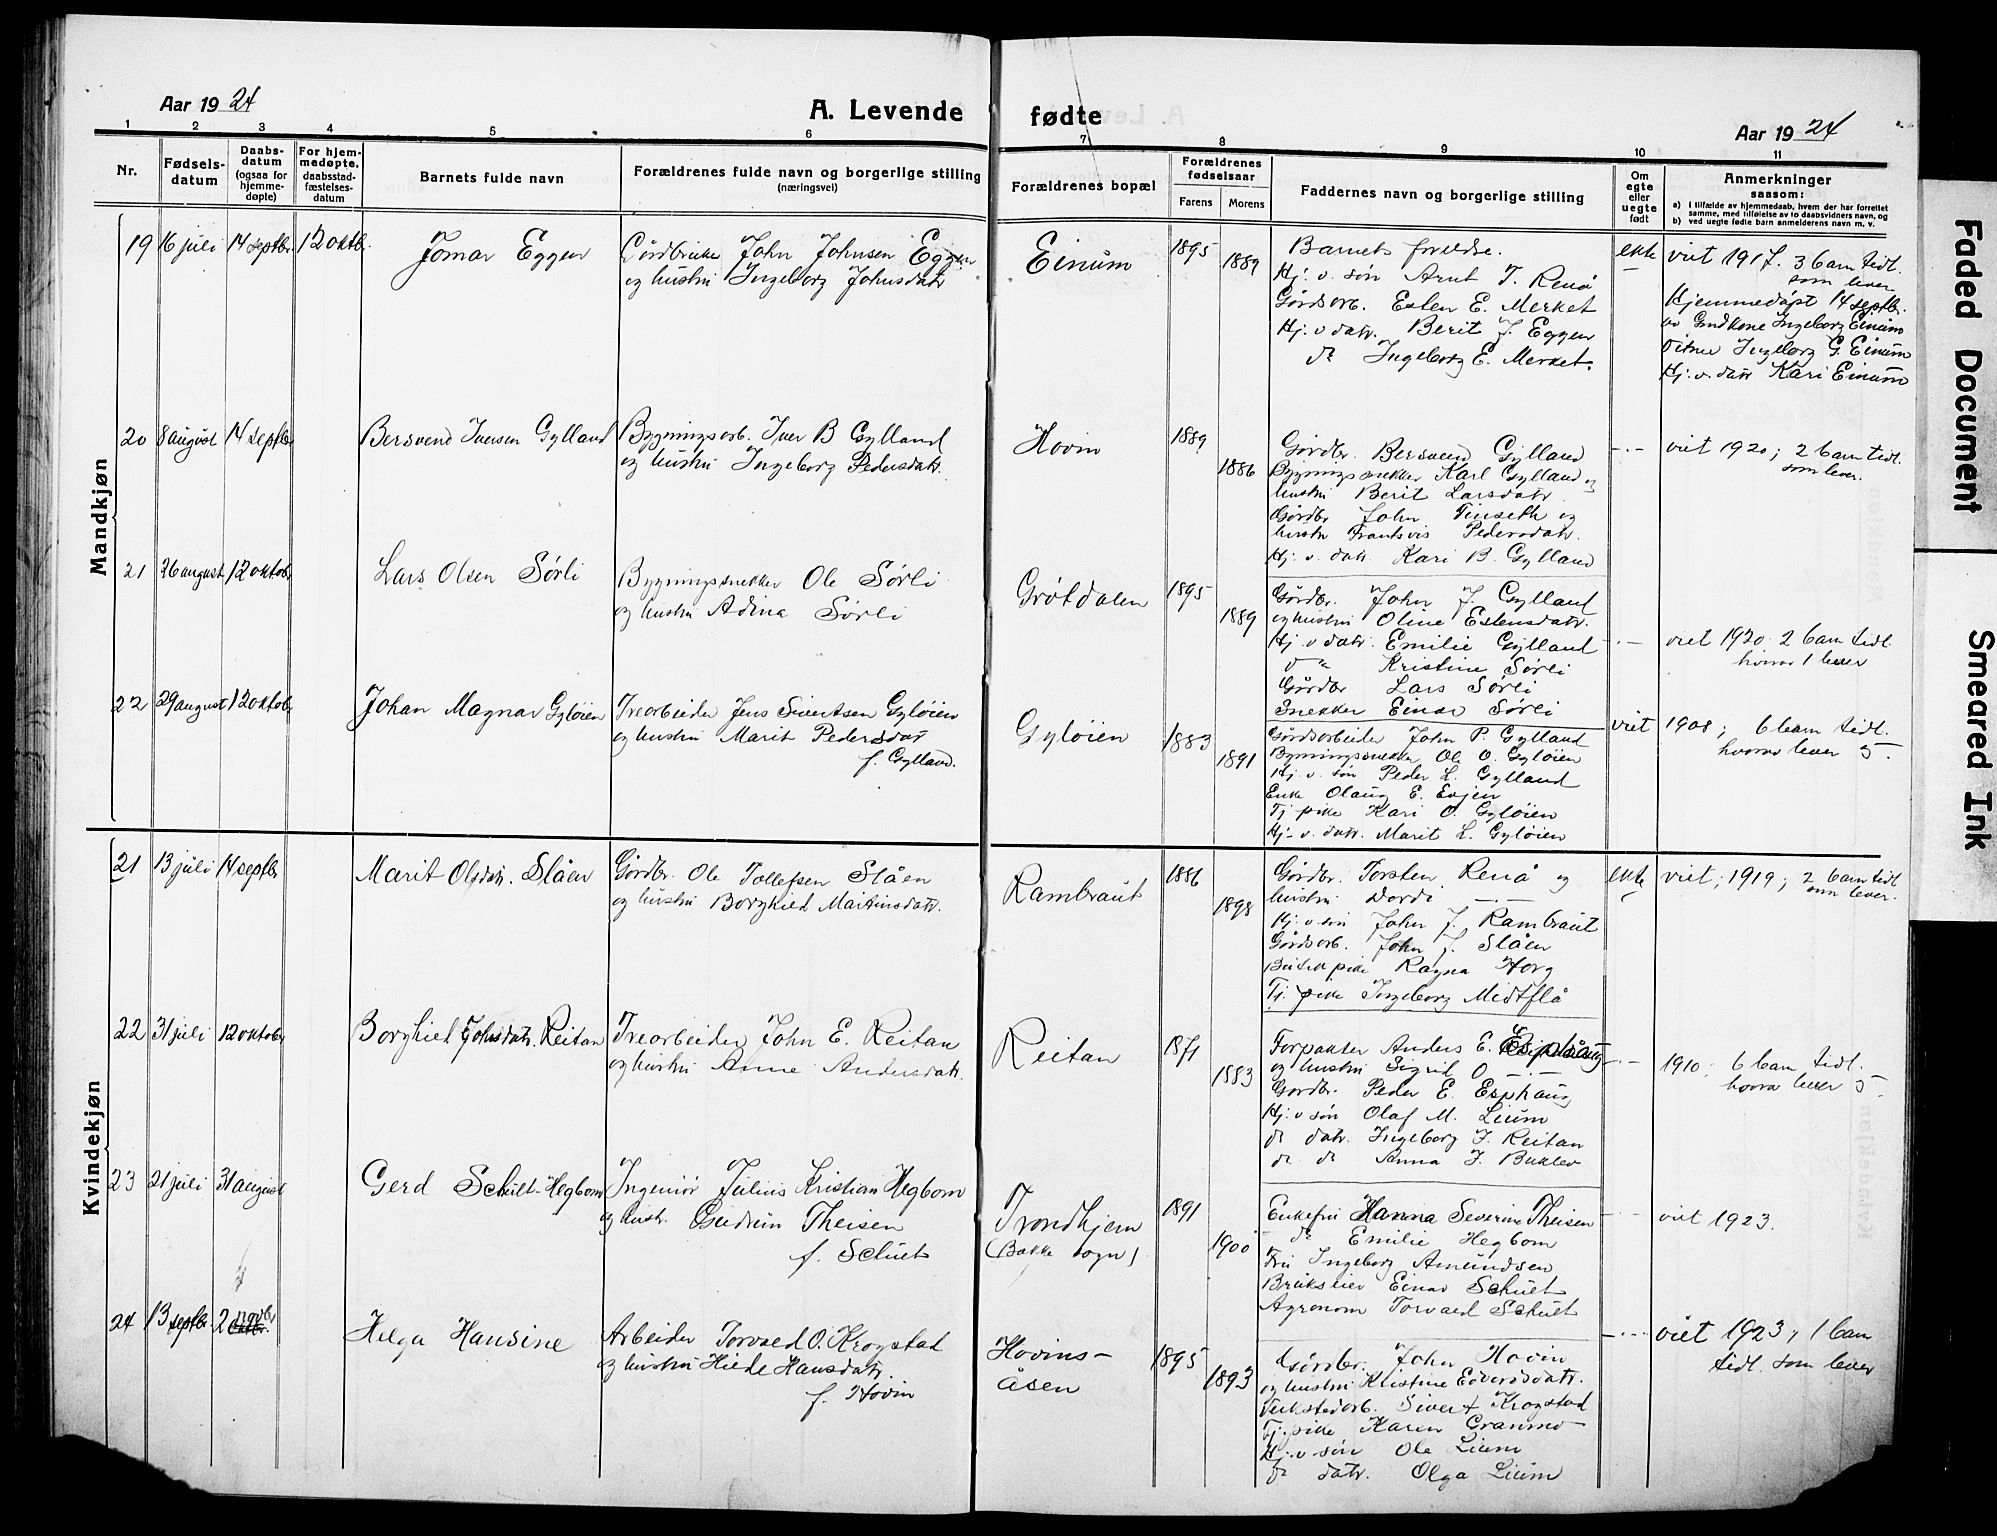 Aar 1924
A. Levende fødte
Aar 1924
1 2 3 4 5 6 7 8 9 10 11
Nr.
Fødsels-
datum
Daabs-
datum
(ogsaa for
hjemme-
døpte)
For hjem-
medøpte.
daabsstad-
fæstelses-
datum
Barnets fulde navn
Forældrenes fulde navn og borgerlige stilling
(næringsvei)
Forældrenes bopæl
Forældrenes
fødselsaar
Farens Morens
Faddernes navn og borgerlige stilling
Om
egte
eller
uegte
født
Anmerkninger
saasom:
a) I tilfælde av hjemmedaab, hvem der har forrettet
samme, med tilføielse av to daabsvidners navn, og
b) ved uegte fødte barn anmelderens navn m. v.
Mandkjøn
19 16 juli 14 septbr. 12 oktbr. Jomar Eggen
Gårdbruker John Johnsen Eggen
og hustru Ingeborg Johnsdatr
Einum
1895
1889
Barnets foreldre.
Hj. v. søn Arnt J. Renå
Gårdsarb. Esten E. Merket
Hj. v. datr. Berit J. Eggen
do Ingeborg E. Merket.
ekte
viet 1917. 3 barn tidl.
som lever
Hjemmedøpt 14 septbr.
av Ingeborg Einum
Vitner Ingeborg G. Einum
Hj. v. datr Kari Einum
20 8 august 14 septbr Bersvend Iversen Gylland
Bygningsarb. Iver B Gylland
og hustru Ingeborg Pedersdatr.
Hovin
1889
1886
Gårdbr. Bersvend Gylland
Bygningssnekker Karl Gylland og
hustru Berit Larsdatr.
Gårdbr John Tinseth og
hustru Pedersdatr.
Hj. v. datr. Kari B. Gylland
-"-
viet 1920; 2 barn tidl.
som lever.
21 26 august 12 oktobr Lars Olsen Sørli
Bygningssnekker Ole Sørli
og hustru Adina Sørli
Grøtdalen
1895
1889
Gårdbr. John J. Gylland
og hustru Oline Estensdatr.
Hj. v. datr. Emilie Gylland
d " Kristine Sørli
Gårdbr Lars Sørli
Snekker Einar Sørli
-"-
viet 1920. 2 barn tidl.
hvorav 1 lever
22 29 august 12 oktobr. Johan Magnar Gyløien
Trearbeider Jens Sivertsen Gyløien
og hustru Marit Pedersdat
f. Gylland.
Gyløien
1883
1891
Gårdsarbeider John P. Gylland
Bygningssnekker Ole O. Gyløien
Hj. v. søn Peder L. Gylland
Enke Olaug E. Evjen
Tj. pike Kari O. Gyløien
Hj. v. datr. Marit L. Gyløien
viet 1908; 6 barn tidl.
hvorav lever 5.
Kvindekjøn
21 13 juli 14 septbr Marit Olsdatr. Slåen
Gårdbr. Ole Tollefsen Slåen
og hustru Borghild Martinsdatr.
Rambraut
1886
1898
Gårdbr. Torsten Renå og
hustru Dordi -"-
Hj. v. søn John J. Rambraut
Gårdsarb. John J. Slåen
Butikpike Ragna Horg
Tj. pike Ingeborg Midtflå
ekte
viet; 1919; 2 barn tidl
som lever.
22 31 juli 12 oktober Borghild Johnsdatr. Reitan
Trearbeider John E. Reitan
og hustru Anne Andersdatr.
Reitan
1871
1883
Forpakter Anders E. Esphaug
og hustru Sigrid O -"-
Gårdbr. Peder E. Esphaug
Hj. v. søn Olaf M. Lium
do datr. Ingeborg J. Reitan
do do Anna J. Buklev
-"-
1910; 6 barn tidl.
hvorav lever 5.
23 21 juli 31 august Gerd Schult-Hegbom
Ingeniør Julius Kristian Hegbom
og hustr. Gudrun Theisen
f. Schult
Trondhjem
(Bakke sogn)
1891
1900
Enkefru Hanna Severine Theisen
do Emilie Hegbom
Fru Ingeborg Amundsen
Brukseier Einar Schult
Agronom Torvald Schult
-"-
viet 1923.
24 13 septbr. 2 novbr Helga Hansine
Arbeider Torvald O. Krogstad
og hustru Hilde Hansdatr.
f. Hovin
Hovins-
åsen
1895
1893
Gårdbr. John Hovin
og hustru Kristine Edvardsdatr.
Verkstedarb. Sivert Krogstad
Tj. pike Karen Granmo
Hj. v søn Ole Lium
do datr. Olga Lium
-"-
viet 1923, 1 barn
tidl. som lever
Faded Document
Smeared Ink